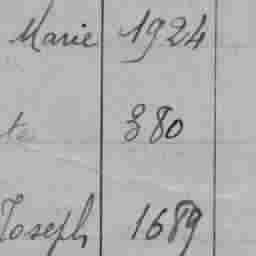 Marie 1924
te 380
Joseph 1689